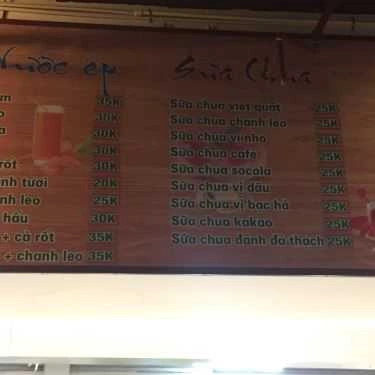 Nước ép
35K
35K
30K
30K
rốt 30K
nh tươi 20K
nh leo 25K
hấu 30K
+ cà rốt 35K
+ chanh leo 35K
Sữa Chua
Sữa chua việt quất 25K
Sữa chua chanh leo 25K
Sữa chua vị nho 25K
Sữa chua cafe 25K
Sữa chua socala 25K
Sữa chua vị dâu 25K
Sữa chua vị bạc hà 25K
Sữa chua kakao 25K
Sữa chua đánh đá thạch 25K